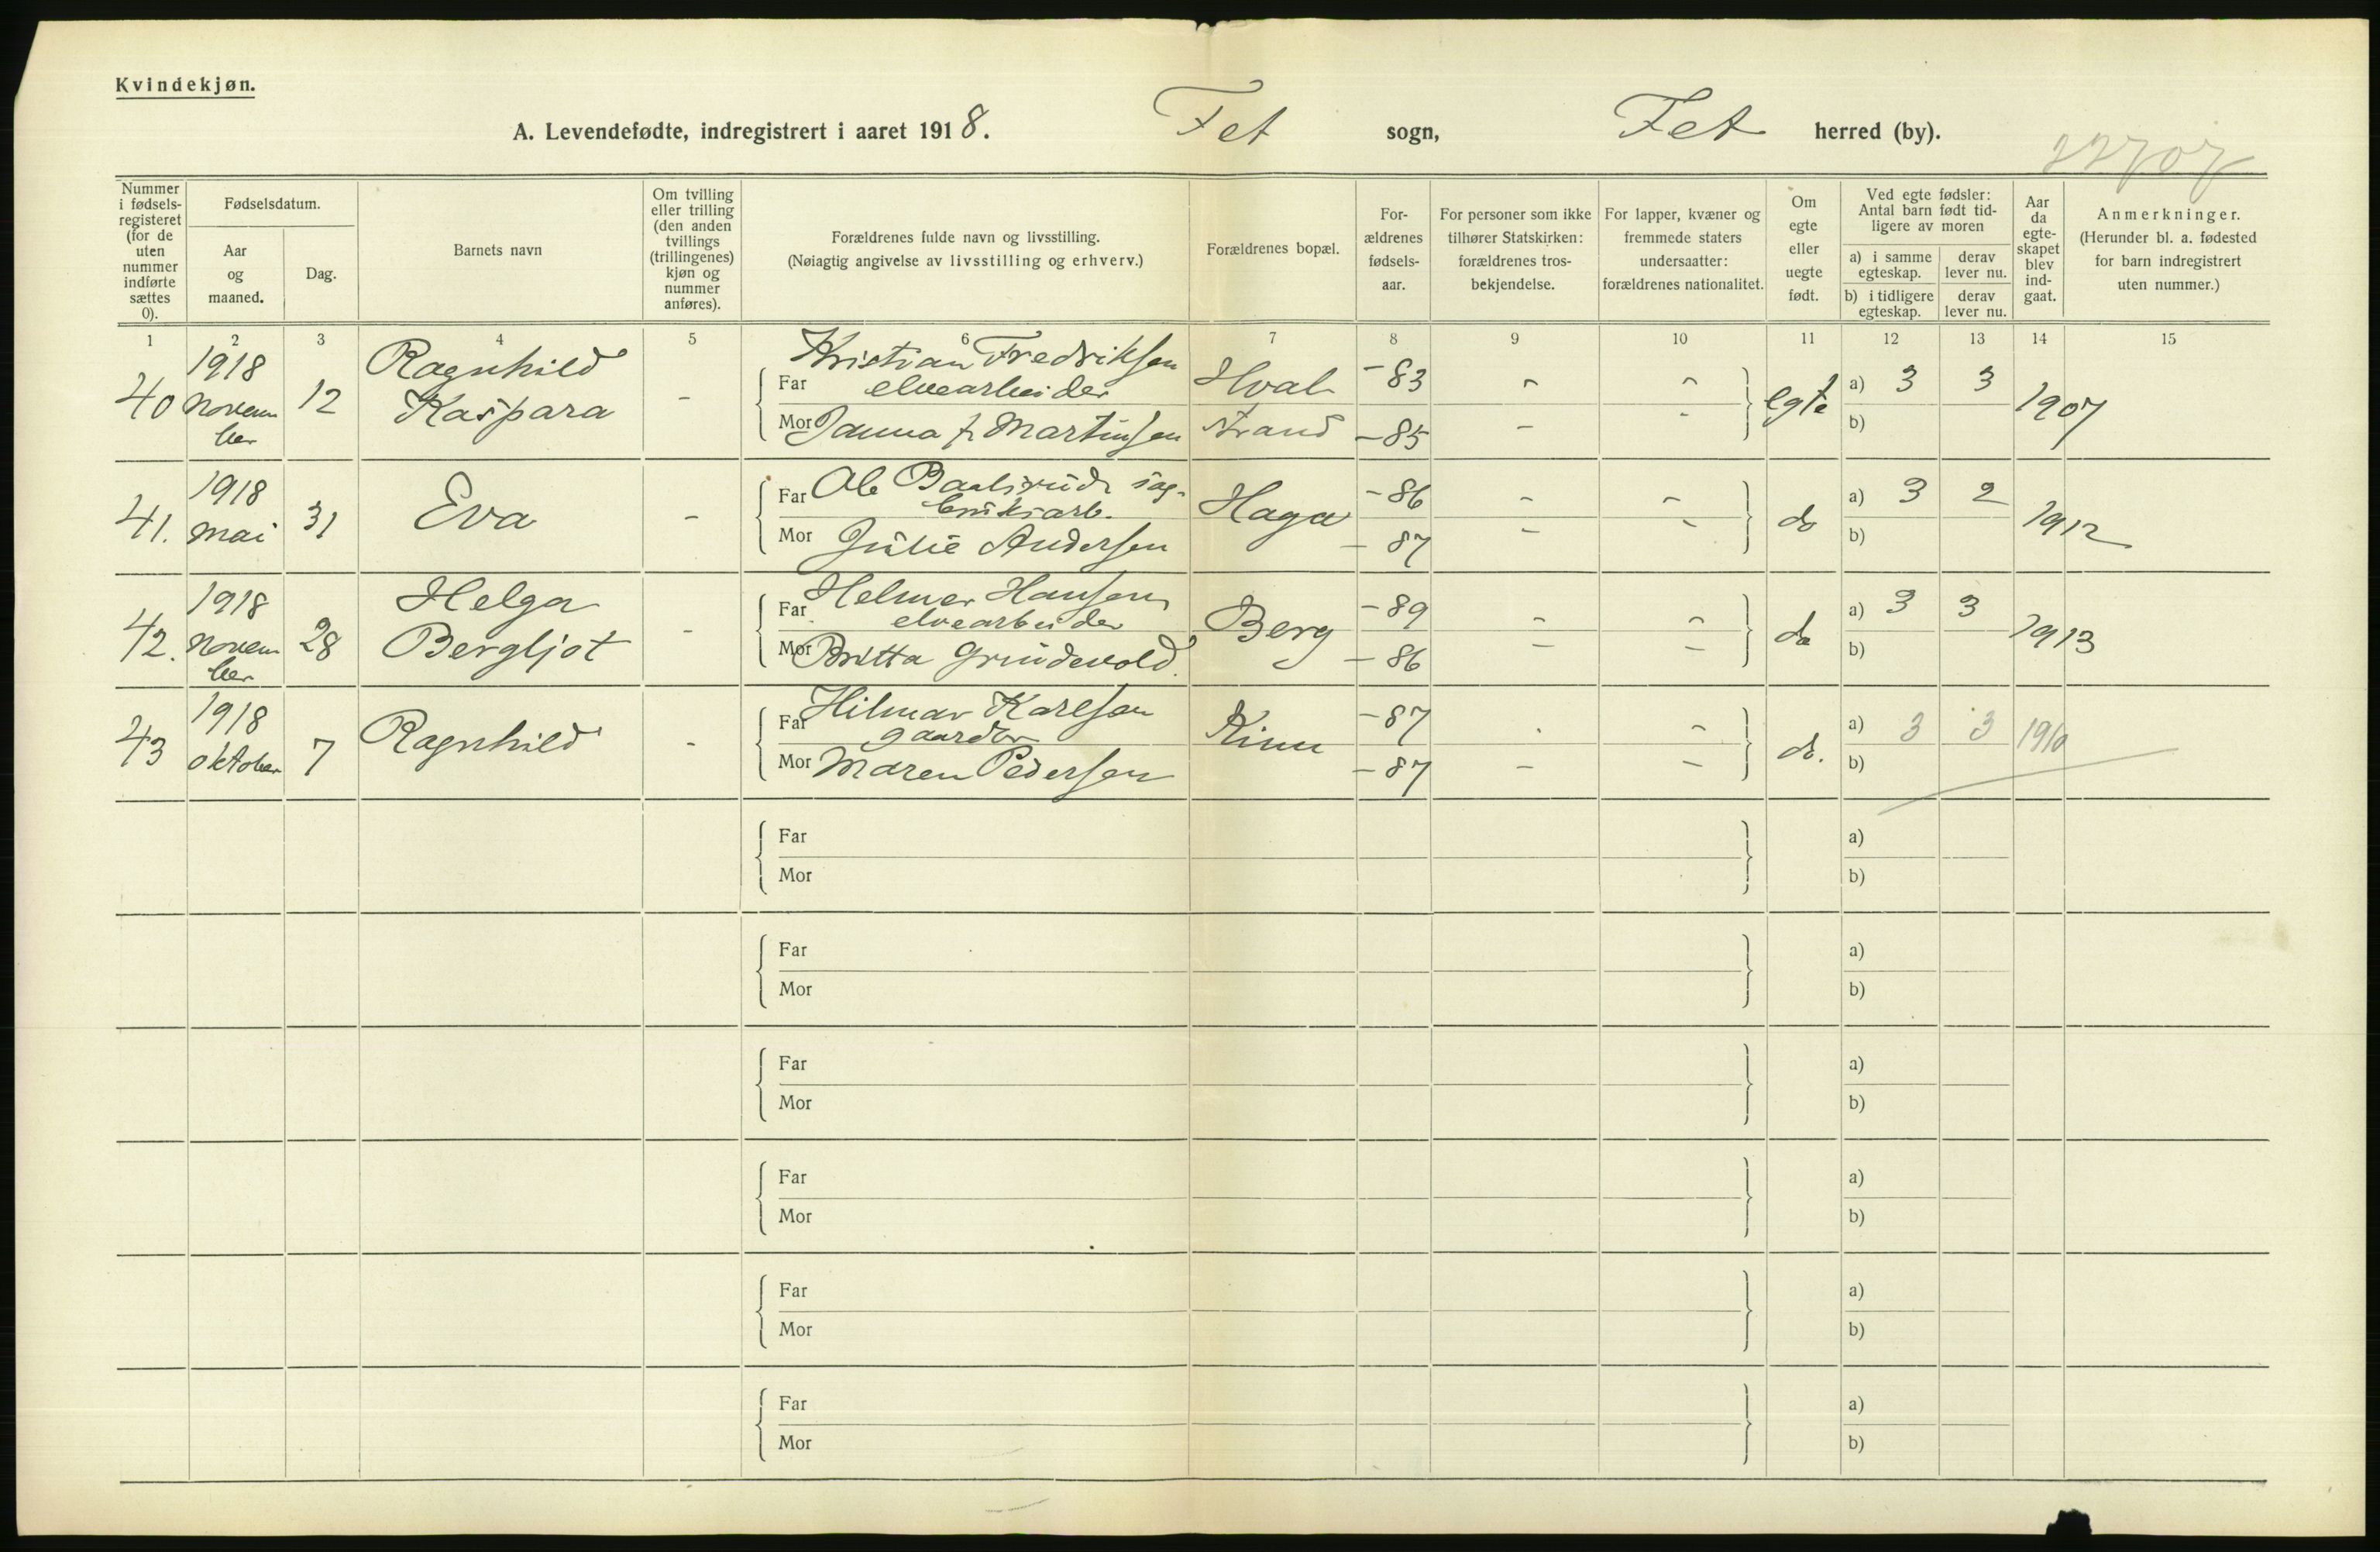 Kvindekjøn.
A. Levendefødte, indregistrert i aaret 1918. Fet sogn, Fet herred (by).
22707
Nummer i fødsels-registeret (for de uten nummer indførte sættes 0).
Fødselsdatum.
Aar og maaned.
Dag.
Barnets navn
Om tvilling eller trilling (den anden tvillings (trillingenes) kjøn og nummer anføres).
Forældrenes fulde navn og livsstilling.
(Nøiagtig angivelse av livsstilling og erhverv.)
Forældrenes bopæl.
For-ældrenes fødsels-aar.
For personer som ikke tilhører Statskirken: forældrenes tros-bekjendelse.
For lapper, kvæner og fremmede staters undersaatter: forældrenes nationalitet.
Om egte eller uegte født.
Ved egte fødsler: Antal barn født tid-ligere av moren
a) i samme egteskap.
derav lever nu.
b) i tidligere egteskap.
derav lever nu.
Aar da egte-skapet blev ind-gaat.
Anmerkninger.
(Herunder bl. a. fødested for barn indregistrert uten nummer.)
1 2 3 4 5 6 7 8 9 10 11 12 13 14 15
40 1918 novem ber 12 Ragnhild Kaspara -
Far Kristian Fredriksen elvearbeider
Mor Janna f. Martinsen
Hval strand -83 -85 - - - - egte a) 3 3 b) 1907
41. 1918 mai 31 Eva -
Far Ole Baalsrud sag-bruksarb.
Mor Julie Andersen
Haga -86 -87 - - - - do a) 3 2 b) 1912
42. 1918 novem ber 28 Helga Bergljot -
Far Helmer Hansen elvearbeider
Mor Britta Grindevold.
Berg -89 -86 - - - - do a) 3 3 b) 1913
43 1918 oktober 7 Ragnhild -
Far Hilmar Karlsen gaardbr
Mor Maren Pedersen
-87 -87 - - - - do. a) 3 3 b) 1910
Far
Mor
a)
b)
Far
Mor
a)
b)
Far
Mor
a)
b)
Far
Mor
a)
b)
Far
Mor
a)
b)
Far
Mor
a)
b)